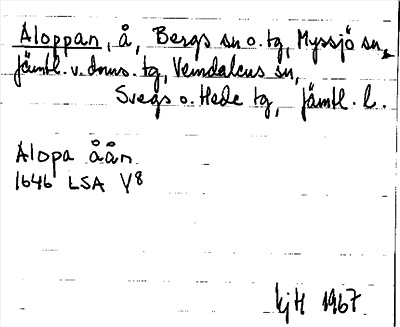 Aloppan, å, Bergs sn o. tg, Myssjö sn,
Jämtl. v. doms. tg, Vemdalens sn,
Svegs o. Hede tg, Jämtl. l.
Alopa åån
1646 LSA Y8
kjH 1967